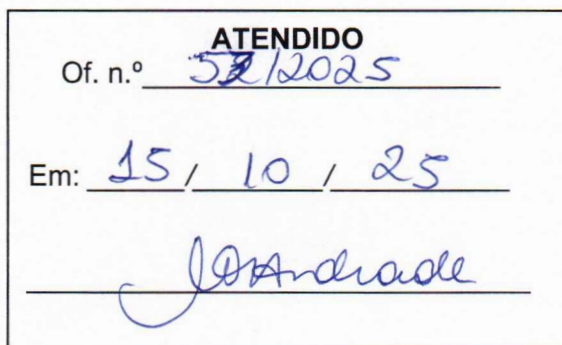 ATENDIDO
Of. n.º /2025
Em: 15 / 10 / 25
Andrade